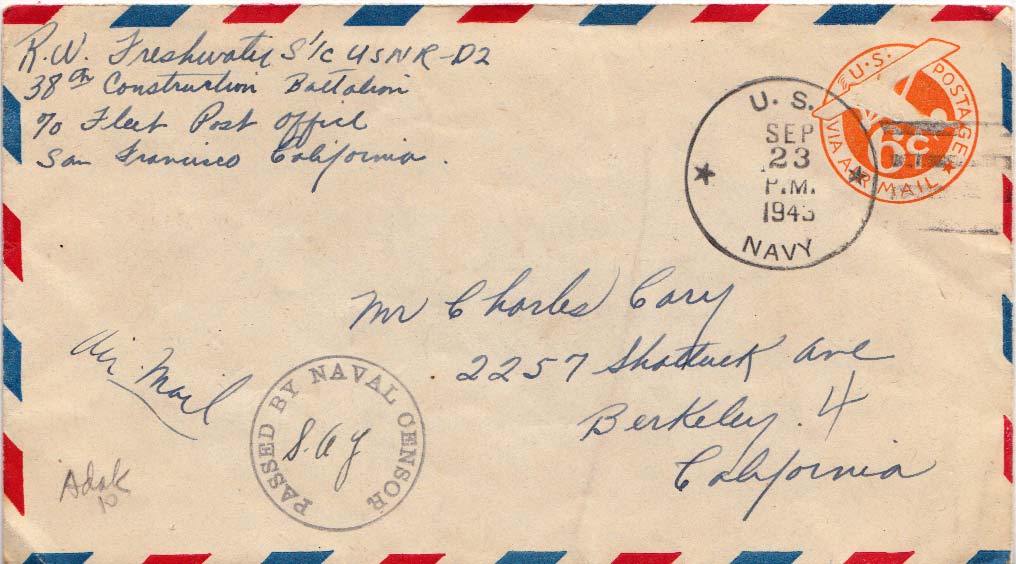 R.W. Freshwater S1/c USNR-D2
38th Construction Battalion
℅ Fleet Post Office
San Francisco California.
U.S. NAVY
SEP
23
P.M.
1943
U.S. POSTAGE
6c
VIA AIR MAIL
Mr Charles Cary
2257 Shattuck Ave
Berkeley. 4
California
Air Mail
PASSED BY NAVAL CENSOR
Adak